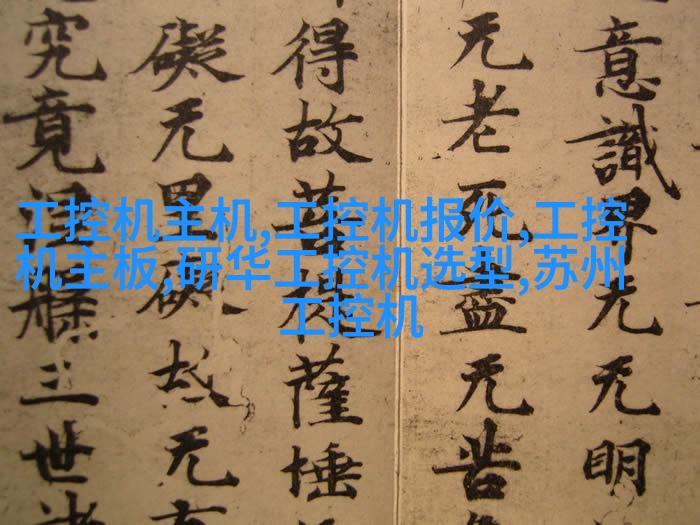 工控机主机,工控机报价,工控
机主板,研华工控机选型,苏州
工控机
意識界无无明
无老死盡无苦
得故菩提薩埵
礙无罣礙故无有
究竟涅槃三世諸